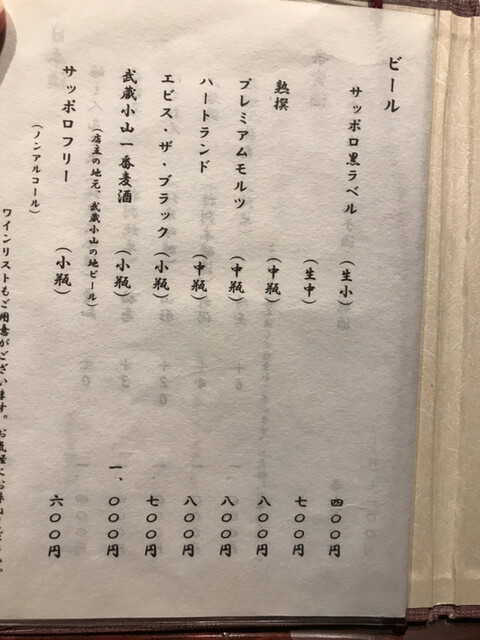 ビール
サッポロ黒ラベル (生小) 四〇〇円
(生中) 七〇〇円
熟撰 (中瓶) 八〇〇円
プレミアムモルツ (中瓶) 八〇〇円
ハートランド (中瓶) 八〇〇円
エビス・ザ・ブラック (小瓶) 七〇〇円
武蔵小山一番麦酒 (小瓶) 一、〇〇〇円
(店主の地元、武蔵小山の地ビール)
サッポロフリー (小瓶) 六〇〇円
(ノンアルコール)
ワインリストもご用意がございます。お気軽にお